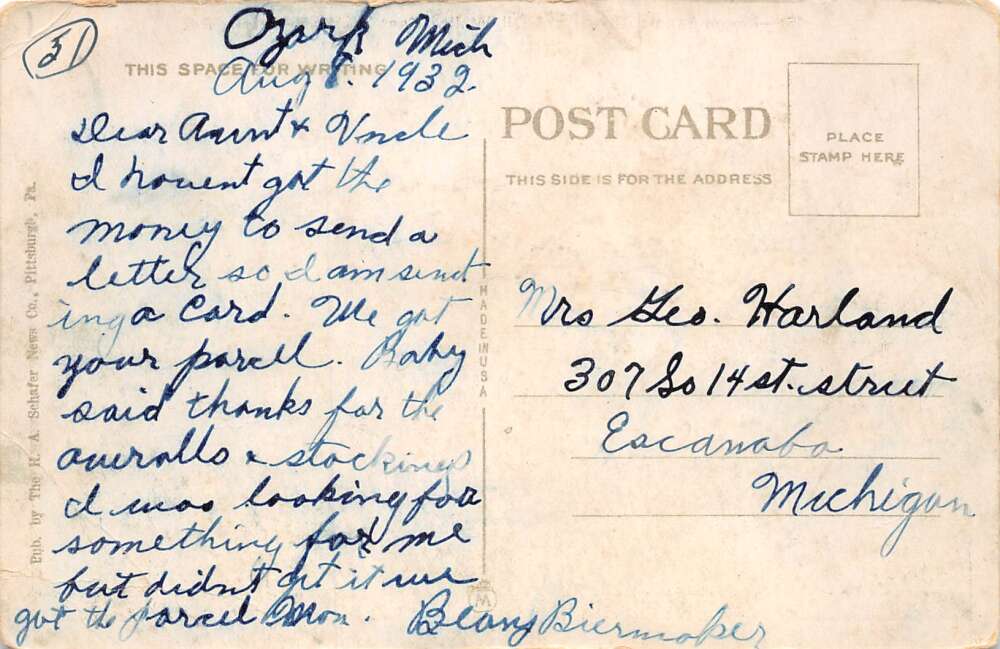 31
Ozark Mich
THIS SPACE FOR WRITING
Aug 8. 1932.
Dear Aunt & Uncle
I havent got the
money to send a
letter so I am send
ing a Card. We got
your parcell. Baby
said thanks for the
overalls & stockings
I was looking for
something for me
but didnt get it we
got the parcel Mon.
Pub. by The K. A. Schafer News Co., Pittsburgh, Pa.
MADE IN USA
POST CARD
THIS SIDE IS FOR THE ADDRESS
PLACE
STAMP HERE
Mrs Geo. Harland
307 So 14 st. street
Escanaba
Michigan
M
Biermaker